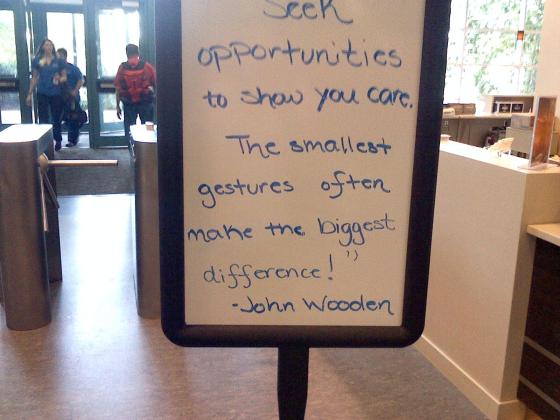 Seek
opportunities
to show you care.
The smallest
gestures often
make the biggest
difference!"
-John Wooden